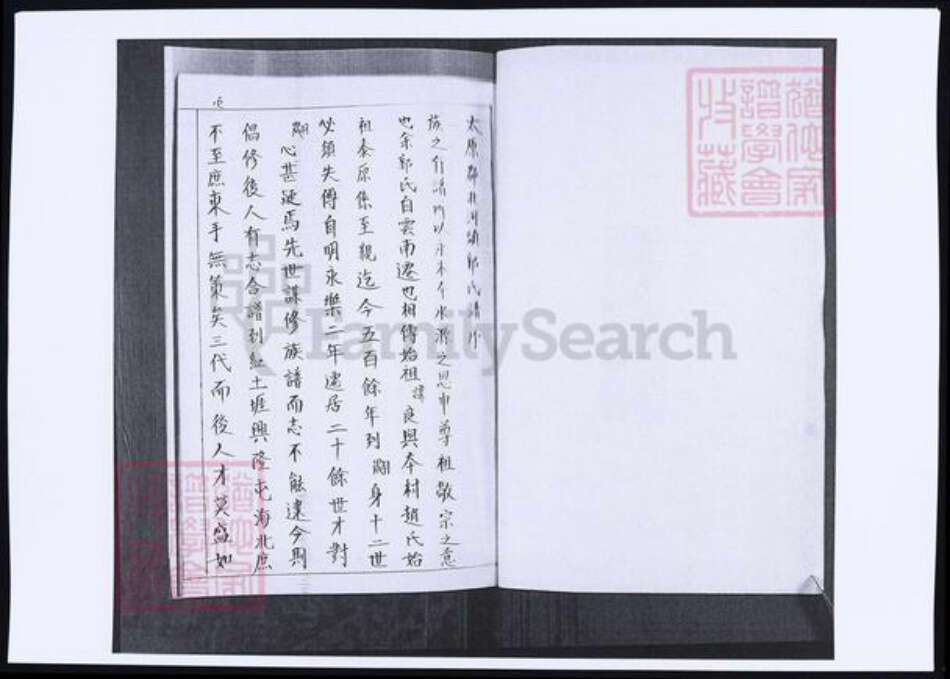 太原郡 郭氏譜序
族之有譜所以 木本水源之思申尊祖敬宗之意
也余郭氏自雲南遷也相傳始祖諱良與本村趙氏始
祖泰原係至親迄今五百餘年到翮身十二世
必須失傳自明永樂二年遷居二十餘世才對
翮心甚 焉先世謀修族譜而志不能達今則
倡修後人有志合譜到紅土堐興隆屯海北庶
不至庶束手無策矣三代而後人才莫盛如
FamilySearch
譜學會
收藏